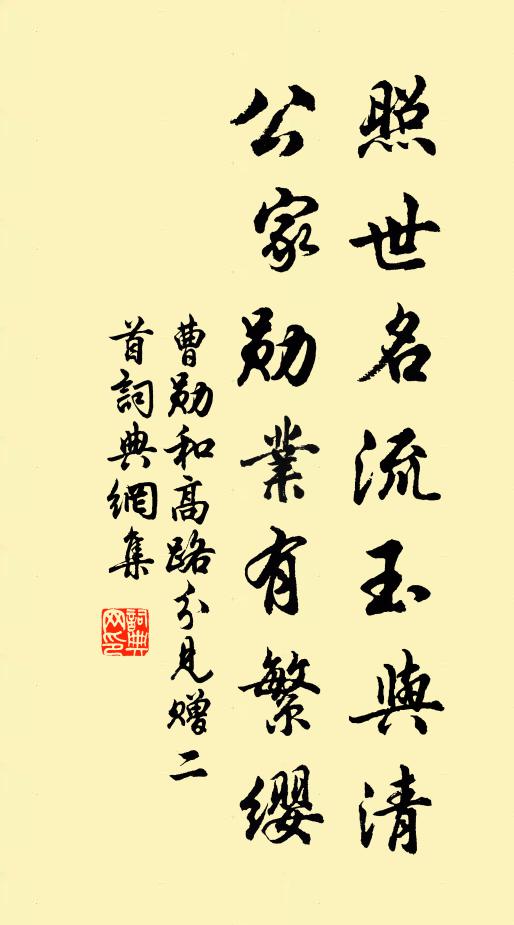 照世名流玉與清
公家勋業有繁缨
曹勋和高路分見赠二
首詞典網集
詞典网印